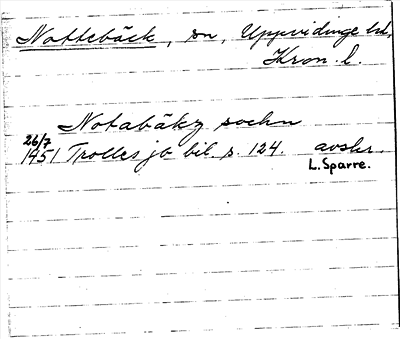 Nottebäck, sn, Uppvidinge hd,
Kron. l.
Notabäkg sochn
26/7
1451 Trolles jb bil s. 124. avskr.
L. Sparre.